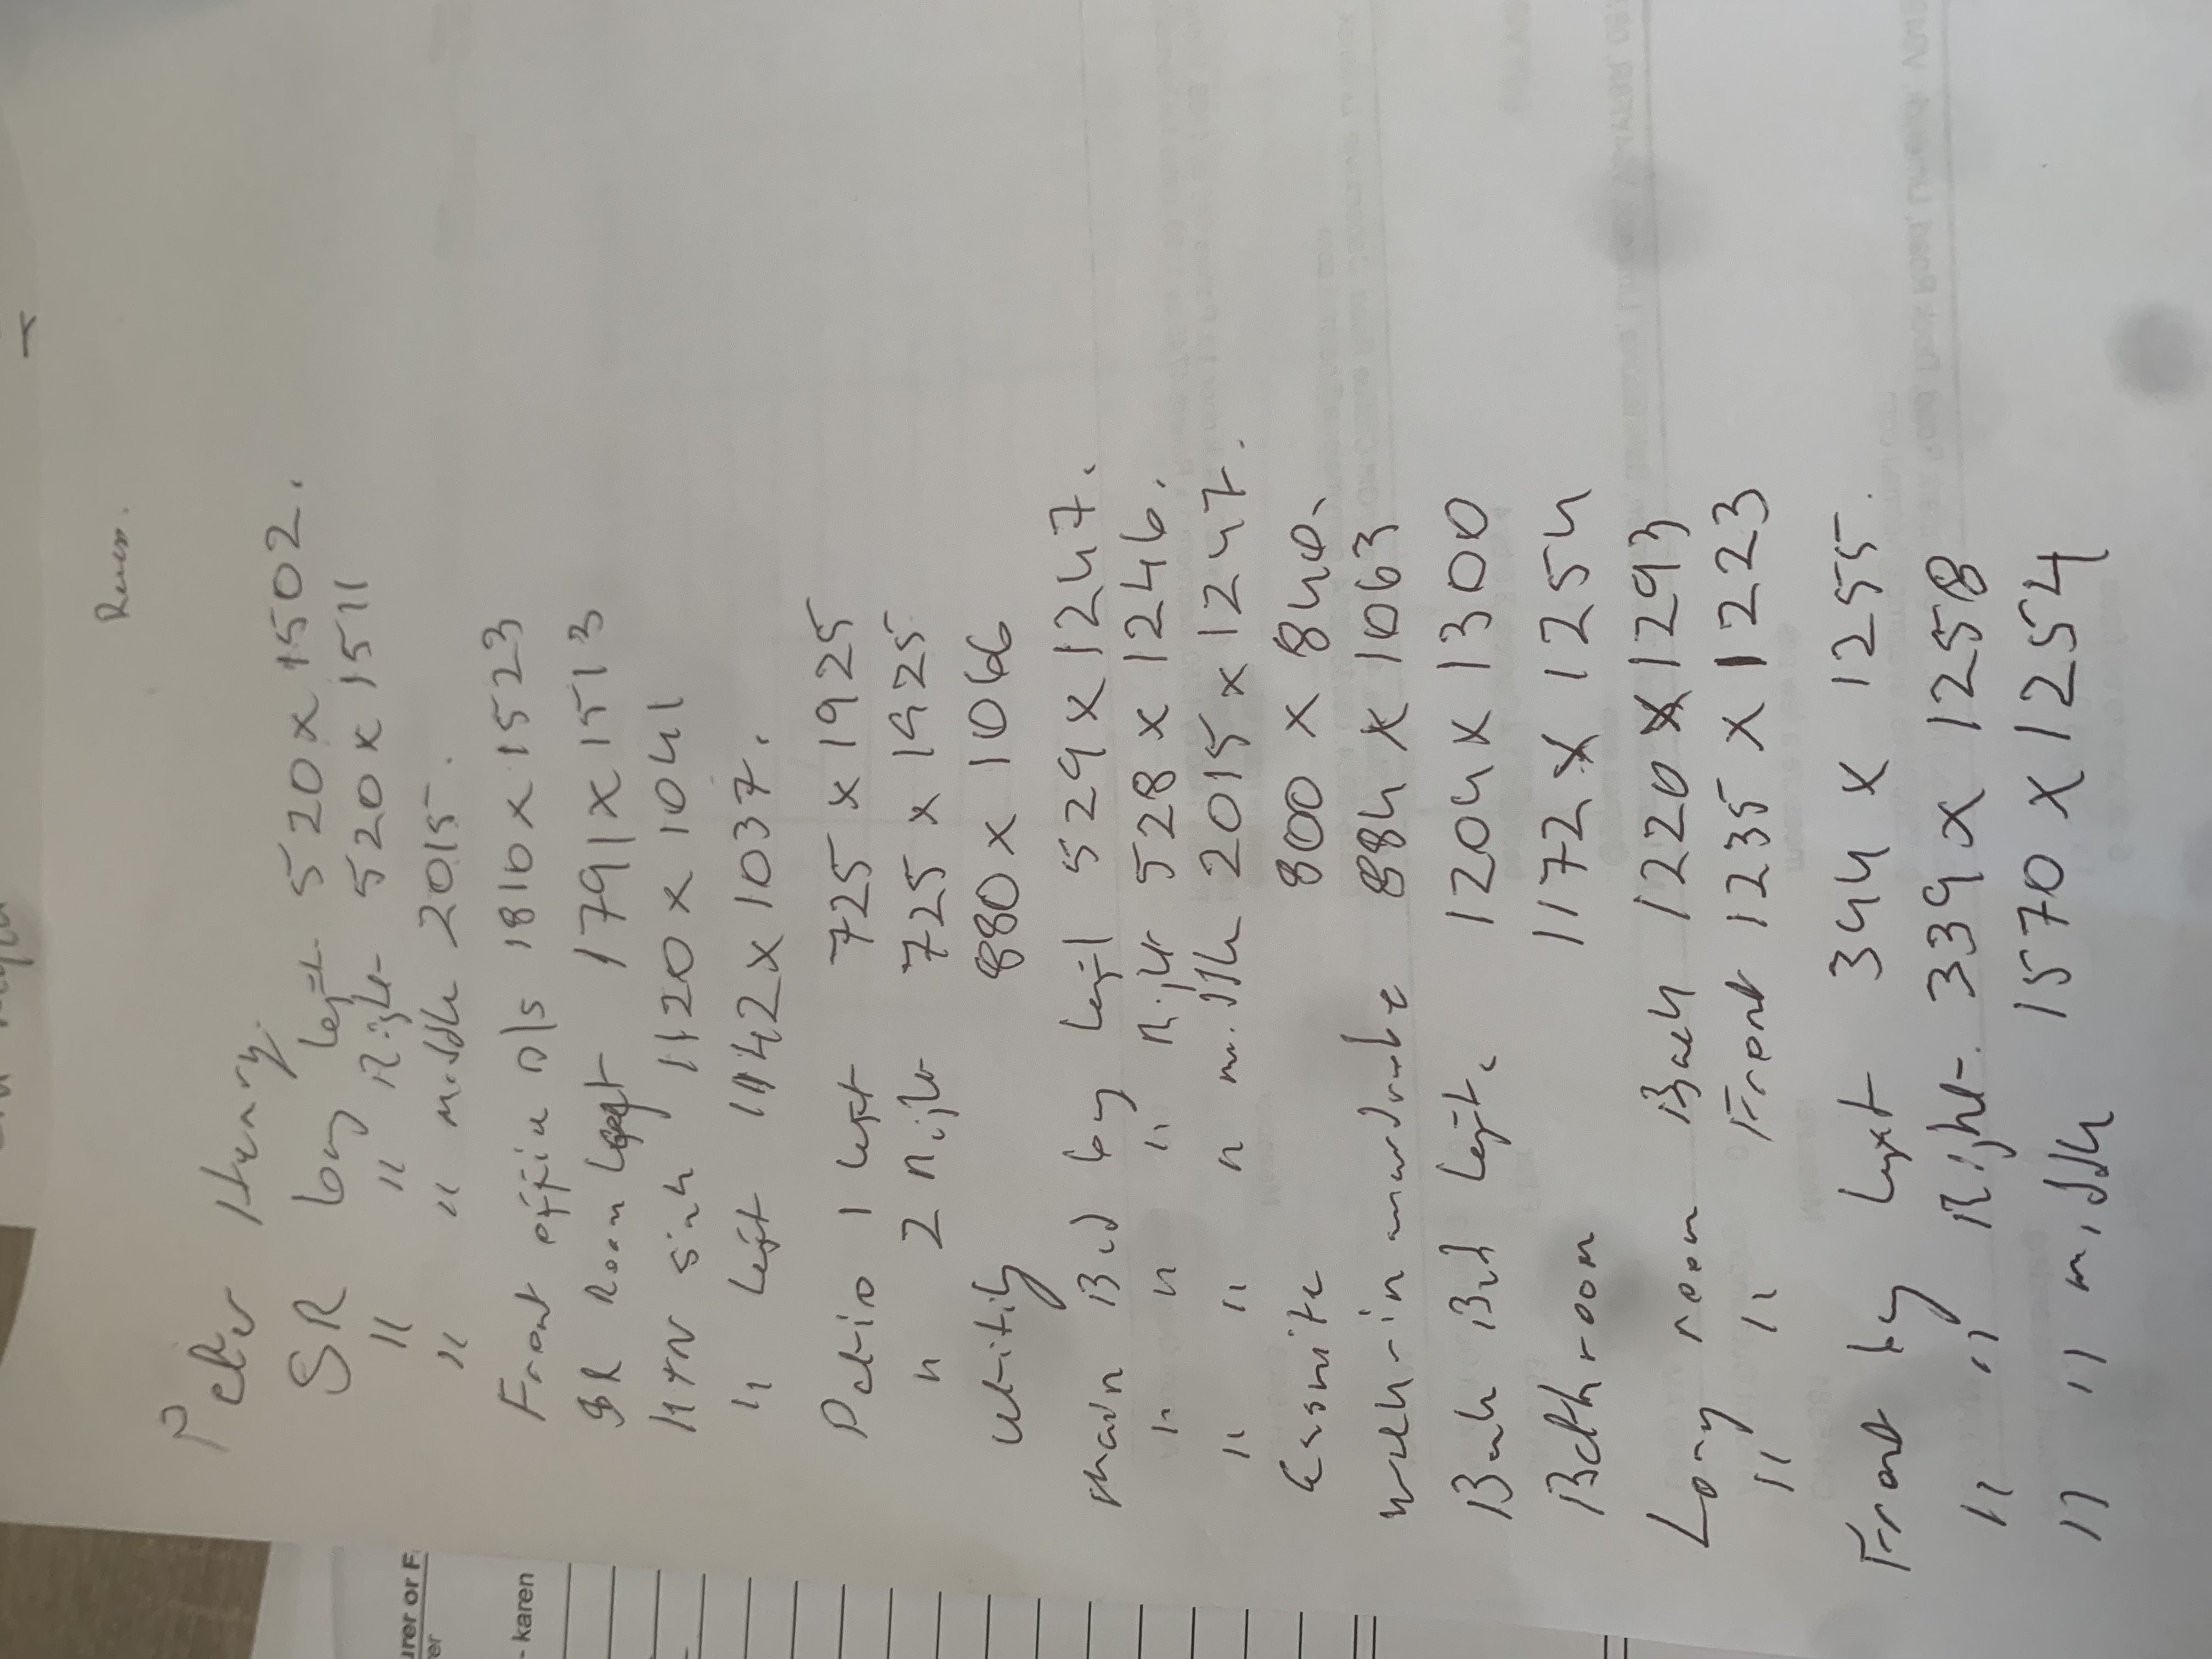 Recess.
Peter Henry.
SR bay Left 520 x 1502.
" " Right 520 x 1511
" " middle 2015.
Front office o/s 1810 x 1523
SR Room Left 1791 x 1513
Ktn sink 1120 x 1041
" Left 1142 x 1037.
Patio 1 left 725 x 1925
" 2 Right 725 x 1925
utility 880 x 1066
main Bed bay Left 529 x 1247.
" " " Right 528 x 1246.
" " " middle 2015 x 1247.
Ensuite 800 x 840.
walk-in wardrobe 884 x 1063
Back Bed Left. 1204 x 1300
Bathroom 1172 x 1254
Long room Back 1220 x 1293
" " Front 1235 x 1223
Front bay Left 344 x 1255.
" " Right 339 x 1258
" " middle 1570 x 1254
urer or F
er
- karen